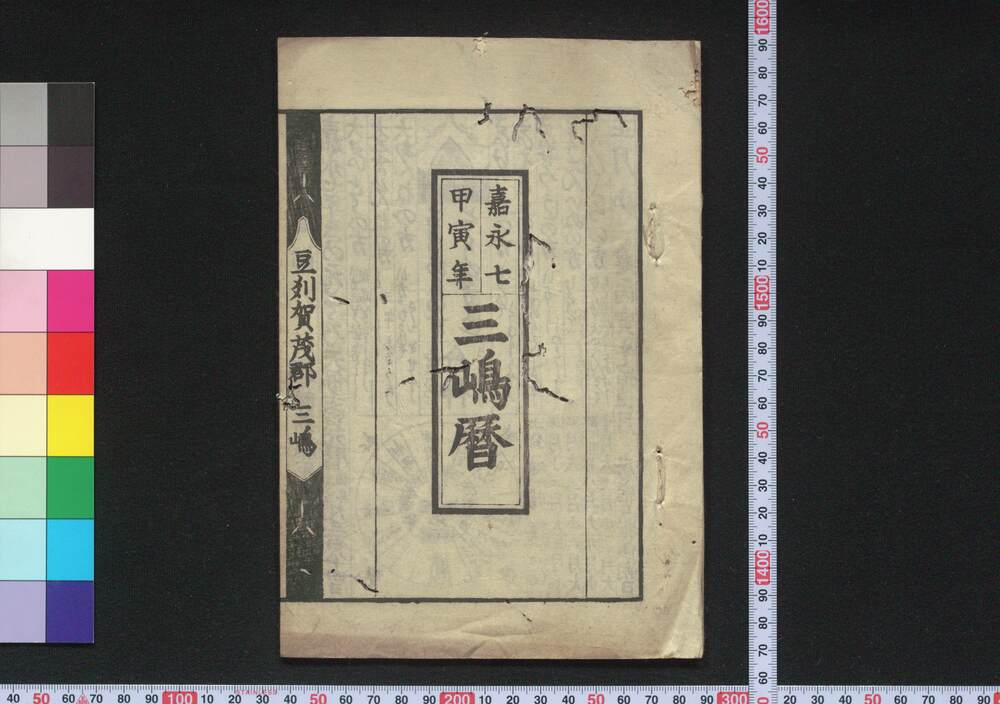 嘉永七
甲寅年
三嶋暦
豆刕賀茂郡 三嶋
STAINLESS
1600
90
80
70
60
50
40
30
20
10
1500
90
80
70
60
50
40
30
20
10
1400
90
80
70
60
40 50 60 70 80 90 100 10 20 30 40 50 60 70 80 90 200 10 20 30 40 50 60 70 80 90 300 10 20 30 40 50 60 70 80 90